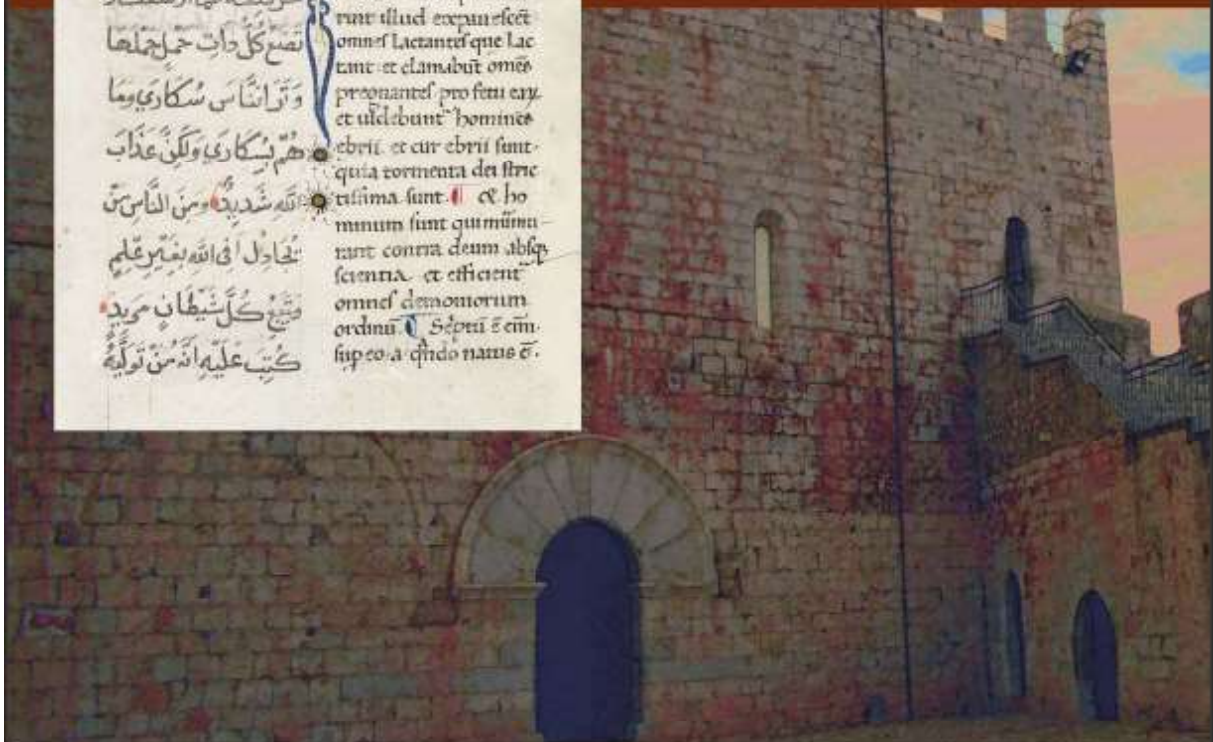 تضع كل ذات حمل حملها
وترا الناس سكارى وما
هم بسكارى ولكن عذاب
الله شديد ومن الناس من
يجادل في الله بغير علم
ويتبع كل شيطان مريد
كتب عليه انه من تولية
runt illud expauescēt
omnes Lactantes que Lac
tant et clamabūt omēs
pregnantes pro fetu eaȝ
et uidebunt homines
ebrii et cur ebrii sunt
quia tormenta dei stric
tissima sunt ¶ & ho
minum sunt qui
rant contra deum absqȝ
scientia et efficient
omnes demoniorum
ordinū ¶ ē eīm
sup eo a natus ē.